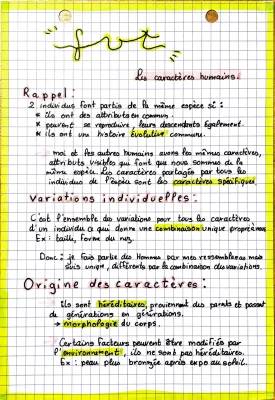 svt
Les caractères humains.
Rappel:
2 individus font partie de la même espèce si :
* ils ont des attributs en commun.
* peuvent se reproduire, leurs descendants également.
* ils ont une histoire évolutive commune.
moi et les autres humains avons les mêmes caractères,
attributs visibles qui font que nous sommes de la
même espèce. Les caractères partagés par tous les
individus de l'espèce sont les caractères spécifiques.
Variations individuelles:
C'est l'ensemble des variations pour tous les caractères
d'un individu ce qui donne une combinaison unique propre à nous.
Ex : taille, forme du nez.
Donc : je fais partie des Hommes par mes ressemblances mais
suis unique, différents par la combinaison des variations.
Origine des caractères:
Ils sont héréditaires, proviennent des parents et passent
de générations en générations.
→ morphologie du corps.
Certains facteurs peuvent être modifiés par
l'environnement, ils ne sont pas héréditaires.
Ex : peau plus bronzée après expo au soleil.